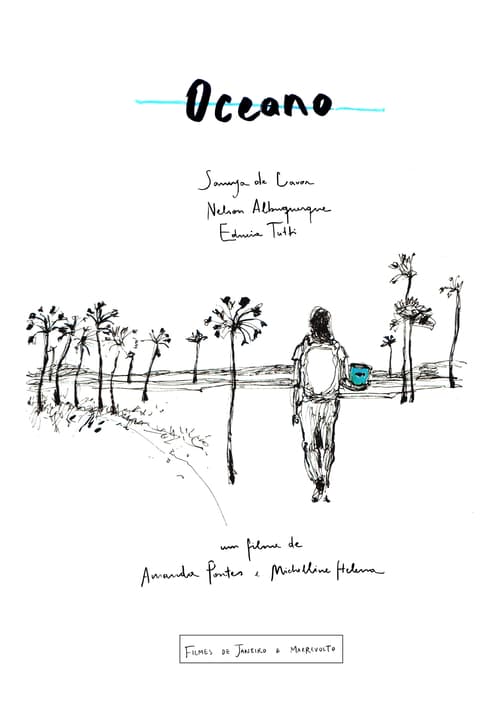 Oceano
Samya de Lavor
Nelson Albuquerque
Edneia Tutti
um filme de
Amanda Pontes e Michelline Helena
FILMES DE JANEIRO E MARREVOLTO